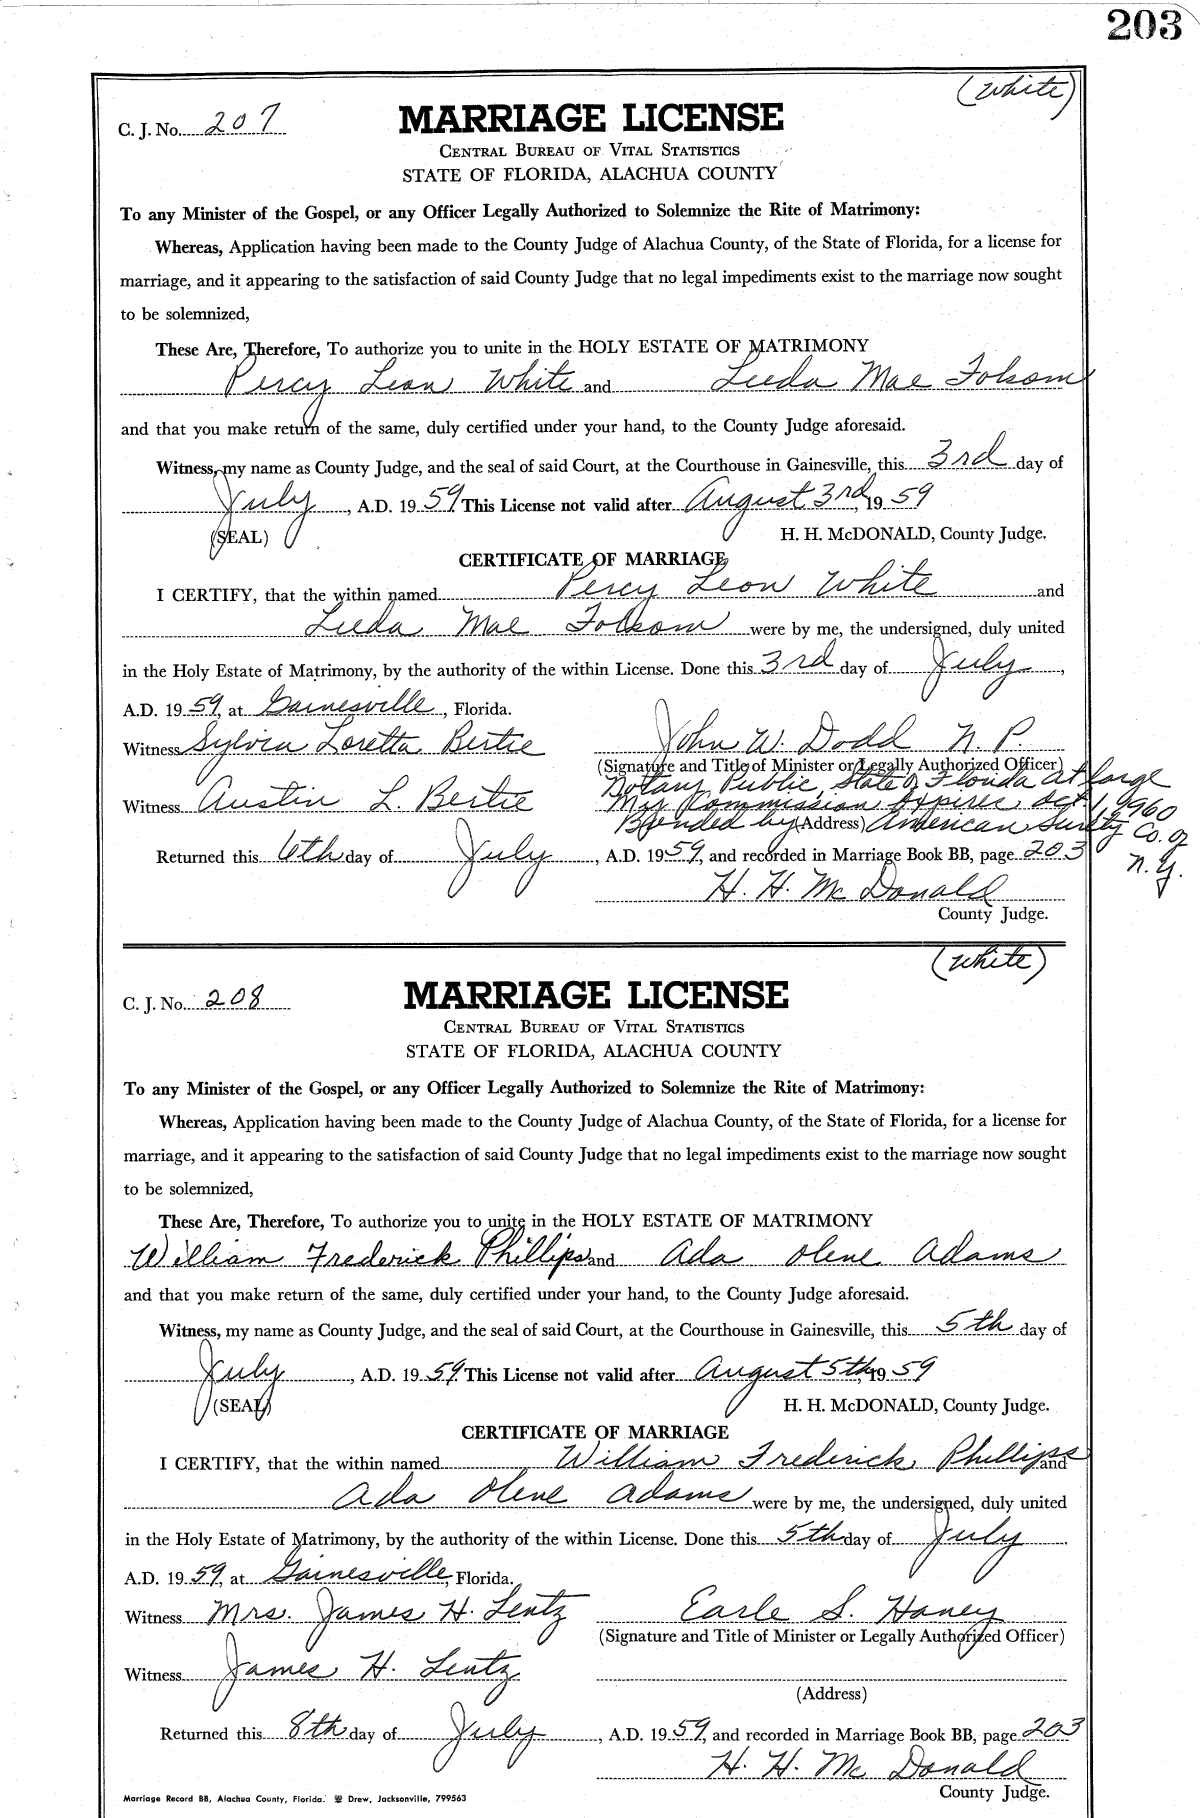 203
(White)
C. J. No. 207
MARRIAGE LICENSE
CENTRAL BUREAU OF VITAL STATISTICS
STATE OF FLORIDA, ALACHUA COUNTY
To any Minister of the Gospel, or any Officer Legally Authorized to Solemnize the Rite of Matrimony:
Whereas, Application having been made to the County Judge of Alachua County, of the State of Florida, for a license for
marriage, and it appearing to the satisfaction of said County Judge that no legal impediments exist to the marriage now sought
to be solemnized,
These Are, Therefore, To authorize you to unite in the HOLY ESTATE OF MATRIMONY
Percy Leon White and Leeda Mae Folsom
and that you make return of the same, duly certified under your hand, to the County Judge aforesaid.
Witness, my name as County Judge, and the seal of said Court, at the Courthouse in Gainesville, this 3rd day of
July, A.D. 1959 This License not valid after August 3rd, 1959
(SEAL) H. H. McDONALD, County Judge.
CERTIFICATE OF MARRIAGE
I CERTIFY, that the within named Percy Leon White and
Leeda Mae Folsom were by me, the undersigned, duly united
in the Holy Estate of Matrimony, by the authority of the within License. Done this 3rd day of July,
A.D. 1959, at Gainesville, Florida.
Witness Sylvia Loretta Bertie John W. Dodd N. P.
(Signature and Title of Minister or Legally Authorized Officer)
Notary Public, State of Florida at large
Witness Austin L. Bertie My Commission Expires Oct. 1, 1960
Bonded by (Address) American Surety Co. of N.Y.
Returned this 6th day of July, A.D. 1959, and recorded in Marriage Book BB, page 203
H. H. McDonald
County Judge.
(White)
C. J. No. 208
MARRIAGE LICENSE
CENTRAL BUREAU OF VITAL STATISTICS
STATE OF FLORIDA, ALACHUA COUNTY
To any Minister of the Gospel, or any Officer Legally Authorized to Solemnize the Rite of Matrimony:
Whereas, Application having been made to the County Judge of Alachua County, of the State of Florida, for a license for
marriage, and it appearing to the satisfaction of said County Judge that no legal impediments exist to the marriage now sought
to be solemnized,
These Are, Therefore, To authorize you to unite in the HOLY ESTATE OF MATRIMONY
William Frederick Phillips and Ada Olene Adams
and that you make return of the same, duly certified under your hand, to the County Judge aforesaid.
Witness, my name as County Judge, and the seal of said Court, at the Courthouse in Gainesville, this 5th day of
July, A.D. 1959 This License not valid after August 5th, 1959
(SEAL) H. H. McDONALD, County Judge.
CERTIFICATE OF MARRIAGE
I CERTIFY, that the within named William Frederick Phillips and
Ada Olene Adams were by me, the undersigned, duly united
in the Holy Estate of Matrimony, by the authority of the within License. Done this 5th day of July
A.D. 1959, at Gainesville, Florida.
Witness Mrs. James H. Lentz Earle S. Haney
(Signature and Title of Minister or Legally Authorized Officer)
Witness James H. Lentz
(Address)
Returned this 8th day of July, A.D. 1959, and recorded in Marriage Book BB, page 203
H. H. McDonald
County Judge.
Marriage Record BB, Alachua County, Florida. Drew, Jacksonville, 799563